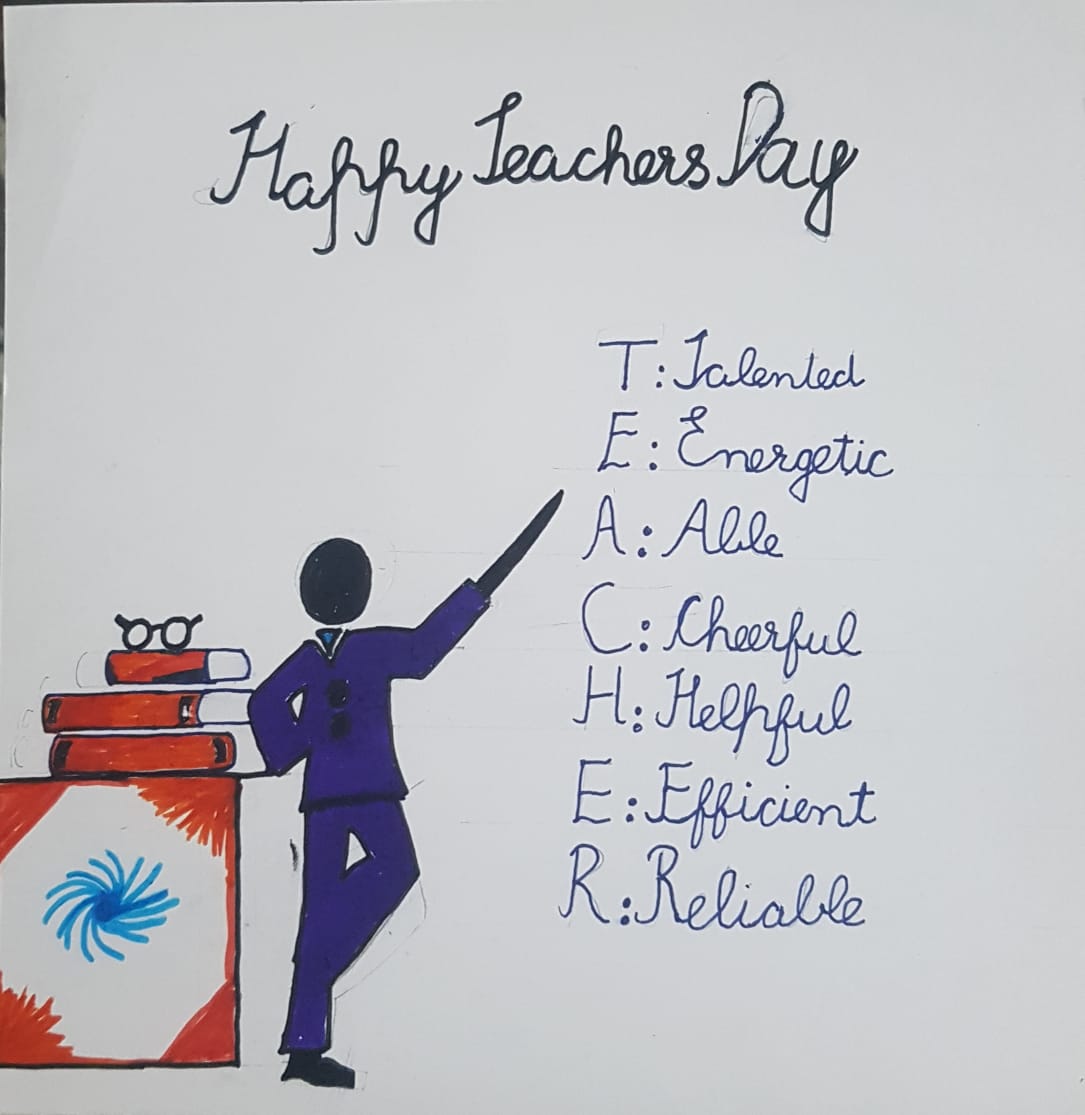 Happy Teachers Day
T: Talented
E: Energetic
A: Able
C: Cheerful
H: Helpful
E: Efficient
R: Reliable